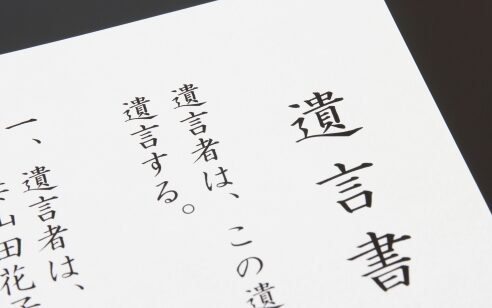 遺言書
遺言者は、この遺
遺言する。
一、遺言者は、
山田花子